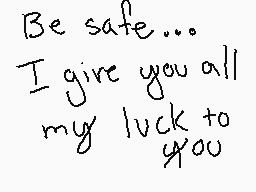 Be safe...
I give you all
my luck to
you